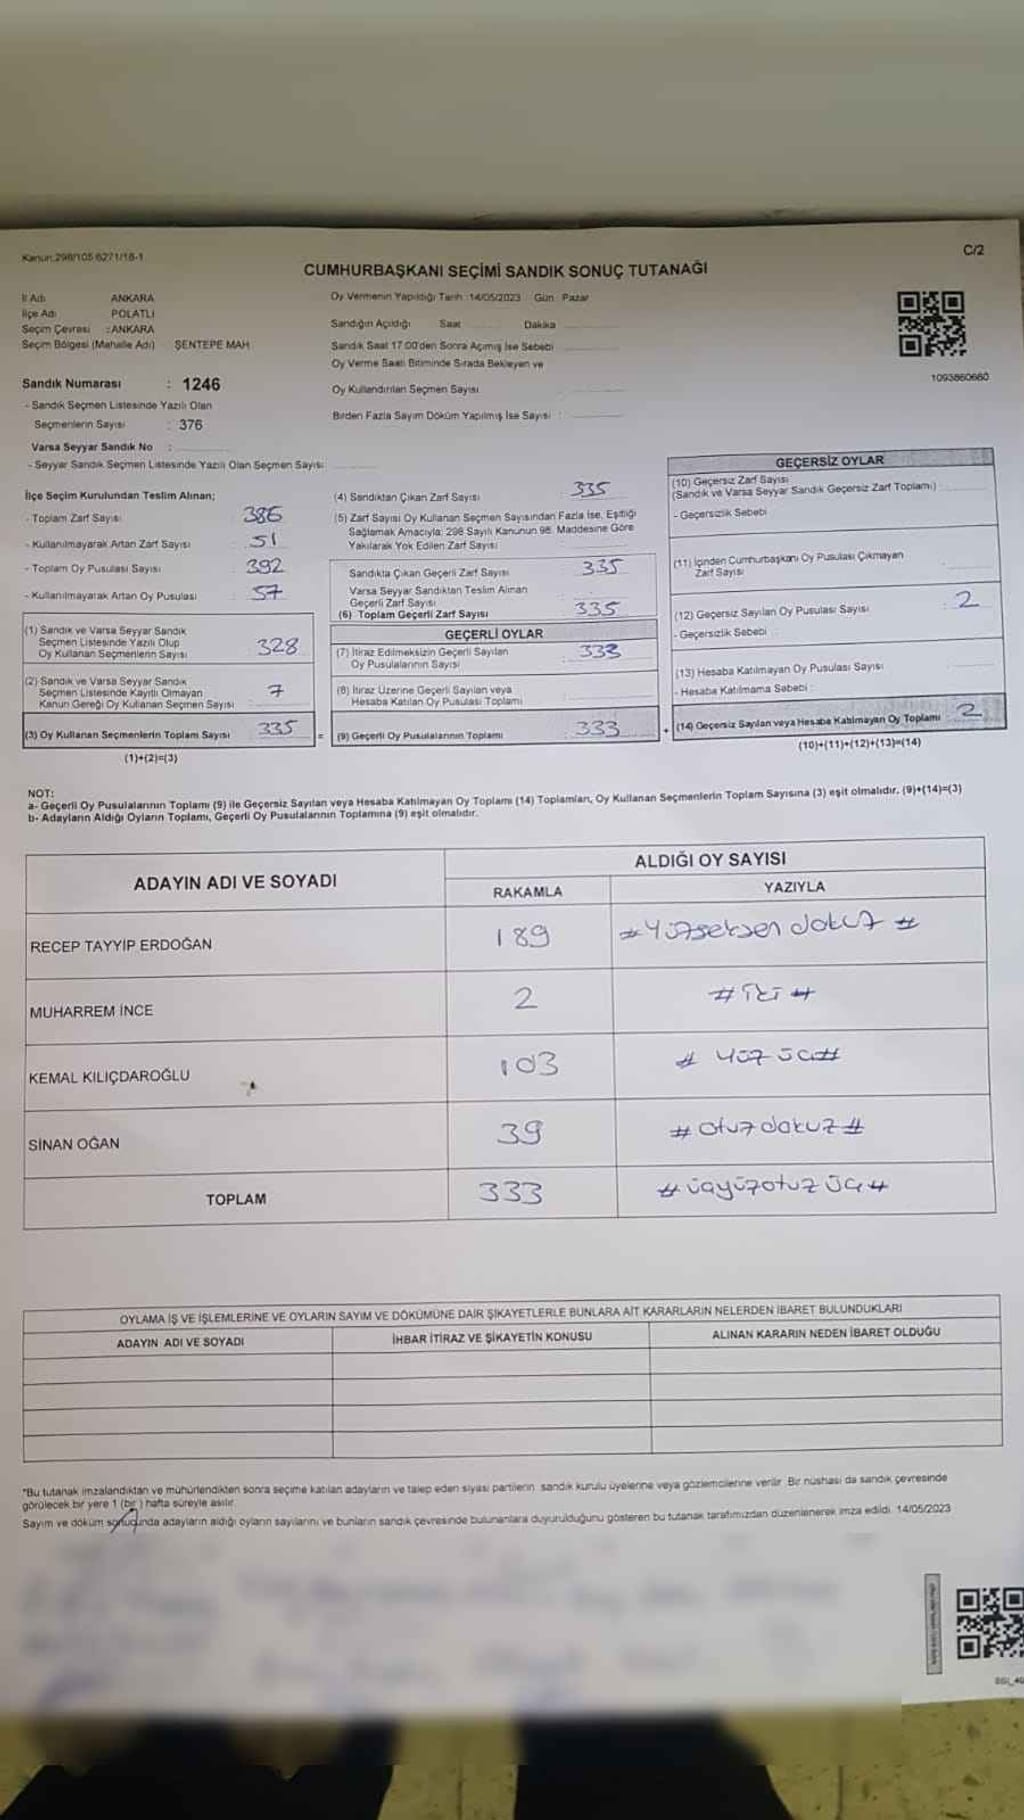 Kanun:298/105 6271/18-1
C/2
CUMHURBAŞKANI SEÇİMİ SANDIK SONUÇ TUTANAĞI
İl Adı ANKARA
İlçe Adı POLATLI
Seçim Çevresi : ANKARA
Seçim Bölgesi (Mahalle Adı) ŞENTEPE MAH
Sandık Numarası : 1246
- Sandık Seçmen Listesinde Yazılı Olan
Seçmenlerin Sayısı : 376
Varsa Seyyar Sandık No :
- Seyyar Sandık Seçmen Listesinde Yazılı Olan Seçmen Sayısı
Oy Vermenin Yapıldığı Tarih :14/05/2023 Gün : Pazar
Sandığın Açıldığı Saat Dakika
Sandık Saat 17.00'den Sonra Açımış İse Sebebi
Oy Verme Saati Bitiminde Sırada Bekleyen ve
Oy Kullandırılan Seçmen Sayısı
Birden Fazla Sayım Döküm Yapılmış İse Sayısı :
1093860660
İlçe Seçim Kurulundan Teslim Alınan;
- Toplam Zarf Sayısı 386
- Kullanılmayarak Artan Zarf Sayısı 51
- Toplam Oy Pusulası Sayısı 392
- Kullanılmayarak Artan Oy Pusulası 57
(1) Sandık ve Varsa Seyyar Sandık
Seçmen Listesinde Yazılı Olup
Oy Kullanan Seçmenlerin Sayısı 328
(2) Sandık ve Varsa Seyyar Sandık
Seçmen Listesinde Kayıtlı Olmayan
Kanun Gereği Oy Kullanan Seçmen Sayısı 7
(3) Oy Kullanan Seçmenlerin Toplam Sayısı 335
(1)+(2)=(3)
(4) Sandıktan Çıkan Zarf Sayısı 335
(5) Zarf Sayısı Oy Kullanan Seçmen Sayısından Fazla İse, Eşitliği
Sağlamak Amacıyla; 298 Sayılı Kanunun 98. Maddesine Göre
Yakılarak Yok Edilen Zarf Sayısı
Sandıkta Çıkan Geçerli Zarf Sayısı 335
Varsa Seyyar Sandıktan Teslim Alınan
Geçerli Zarf Sayısı
(6) Toplam Geçerli Zarf Sayısı 335
GEÇERLİ OYLAR
(7) İtiraz Edilmeksizin Geçerli Sayılan
Oy Pusulalarının Sayısı 333
(8) İtiraz Üzerine Geçerli Sayılan veya
Hesaba Katılan Oy Pusulası Toplamı
= (9) Geçerli Oy Pusulalarının Toplamı 333
GEÇERSİZ OYLAR
(10) Geçersiz Zarf Sayısı
(Sandık ve Varsa Seyyar Sandık Geçersiz Zarf Toplamı)
- Geçersizlik Sebebi
(11) İçinden Cumhurbaşkanı Oy Pusulası Çıkmayan
Zarf Sayısı
(12) Geçersiz Sayılan Oy Pusulası Sayısı 2
- Geçersizlik Sebebi
(13) Hesaba Katılmayan Oy Pusulası Sayısı
- Hesaba Katılmama Sebebi :
+ (14) Geçersiz Sayılan veya Hesaba Katılmayan Oy Toplamı 2
(10)+(11)+(12)+(13)=(14)
NOT:
a- Geçerli Oy Pusulalarının Toplamı (9) ile Geçersiz Sayılan veya Hesaba Katılmayan Oy Toplamı (14) Toplamları, Oy Kullanan Seçmenlerin Toplam Sayısına (3) eşit olmalıdır. (9)+(14)=(3)
b- Adayların Aldığı Oyların Toplamı, Geçerli Oy Pusulalarının Toplamına (9) eşit olmalıdır.
ADAYIN ADI VE SOYADI
ALDIĞI OY SAYISI
RAKAMLA YAZIYLA
RECEP TAYYİP ERDOĞAN 189 #Yüzseksen dokuz #
MUHARREM İNCE 2 # iki #
KEMAL KILIÇDAROĞLU 103 # Yüz üç#
SİNAN OĞAN 39 # Otuz dokuz #
TOPLAM 333 # üçyüzotuz üç #
OYLAMA İŞ VE İŞLEMLERİNE VE OYLARIN SAYIM VE DÖKÜMÜNE DAİR ŞİKAYETLERLE BUNLARA AİT KARARLARIN NELERDEN İBARET BULUNDUKLARI
ADAYIN ADI VE SOYADI İHBAR İTİRAZ VE ŞİKAYETİN KONUSU ALINAN KARARIN NEDEN İBARET OLDUĞU
"Bu tutanak imzalandıktan ve mühürlendikten sonra seçime katılan adayların ve talep eden siyasi partilerin sandık kurulu üyelerine veya gözlemcilerine verilir. Bir nüshası da sandık çevresinde
görülecek bir yere 1 (bir) hafta süreyle asılır.
Sayım ve döküm sonucunda adayların aldığı oyların sayılarını ve bunların sandık çevresinde bulunanlara duyurulduğunu gösteren bu tutanak tarafımızdan düzenlenerek imza edildi. 14/05/2023